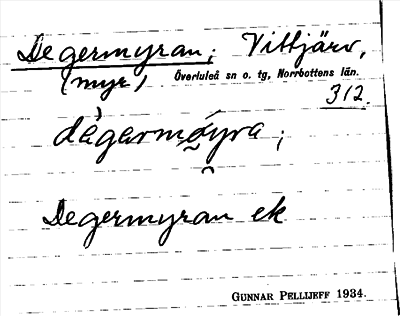 Degermyran; Vittjärv,
(myr) Överluleå sn o. tg, Norrbottens län.
312.
dè̩germöyra;
Degermyran ek
GUNNAR PELLIJEFF 1934.